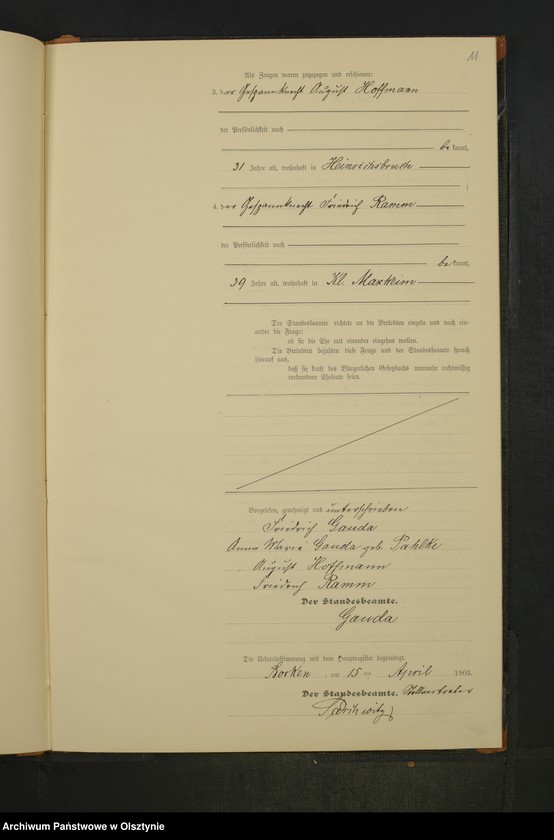 11
Als Zeugen waren zugezogen und erschienen:
3. der Gespannknecht August Hoffmann
der Persönlichkeit nach
be kannt,
31 Jahre alt, wohnhaft in Heinrichsbruch
;
4. der Gespannknecht Friedrich Ramm
der Persönlichkeit nach
be kannt,
39 Jahre alt, wohnhaft in Kl. Maxkeim
Der Standesbeamte richtete an die Verlobten einzeln und nach ein-
ander die Frage:
ob sie die Ehe mit einander eingehen wollen.
Die Verlobten bejahten diese Frage und der Standesbeamte sprach
hierauf aus,
daß sie kraft des Bürgerlichen Gesetzbuchs nunmehr rechtmäßig
verbundene Eheleute seien.
Vorgelesen, genehmigt und unterschrieben
Friedrich Gauda
Anna Marie Gauda geb. Pahlke
August Hoffmann
Friedrich Ramm
Der Standesbeamte.
Gauda
Die Uebereinstimmung mit dem Hauptregister beglaubigt.
Borken am 15 ten April 1903.
Der Standesbeamte. Stellvertreter
Archiwum Państwowe w Olsztynie